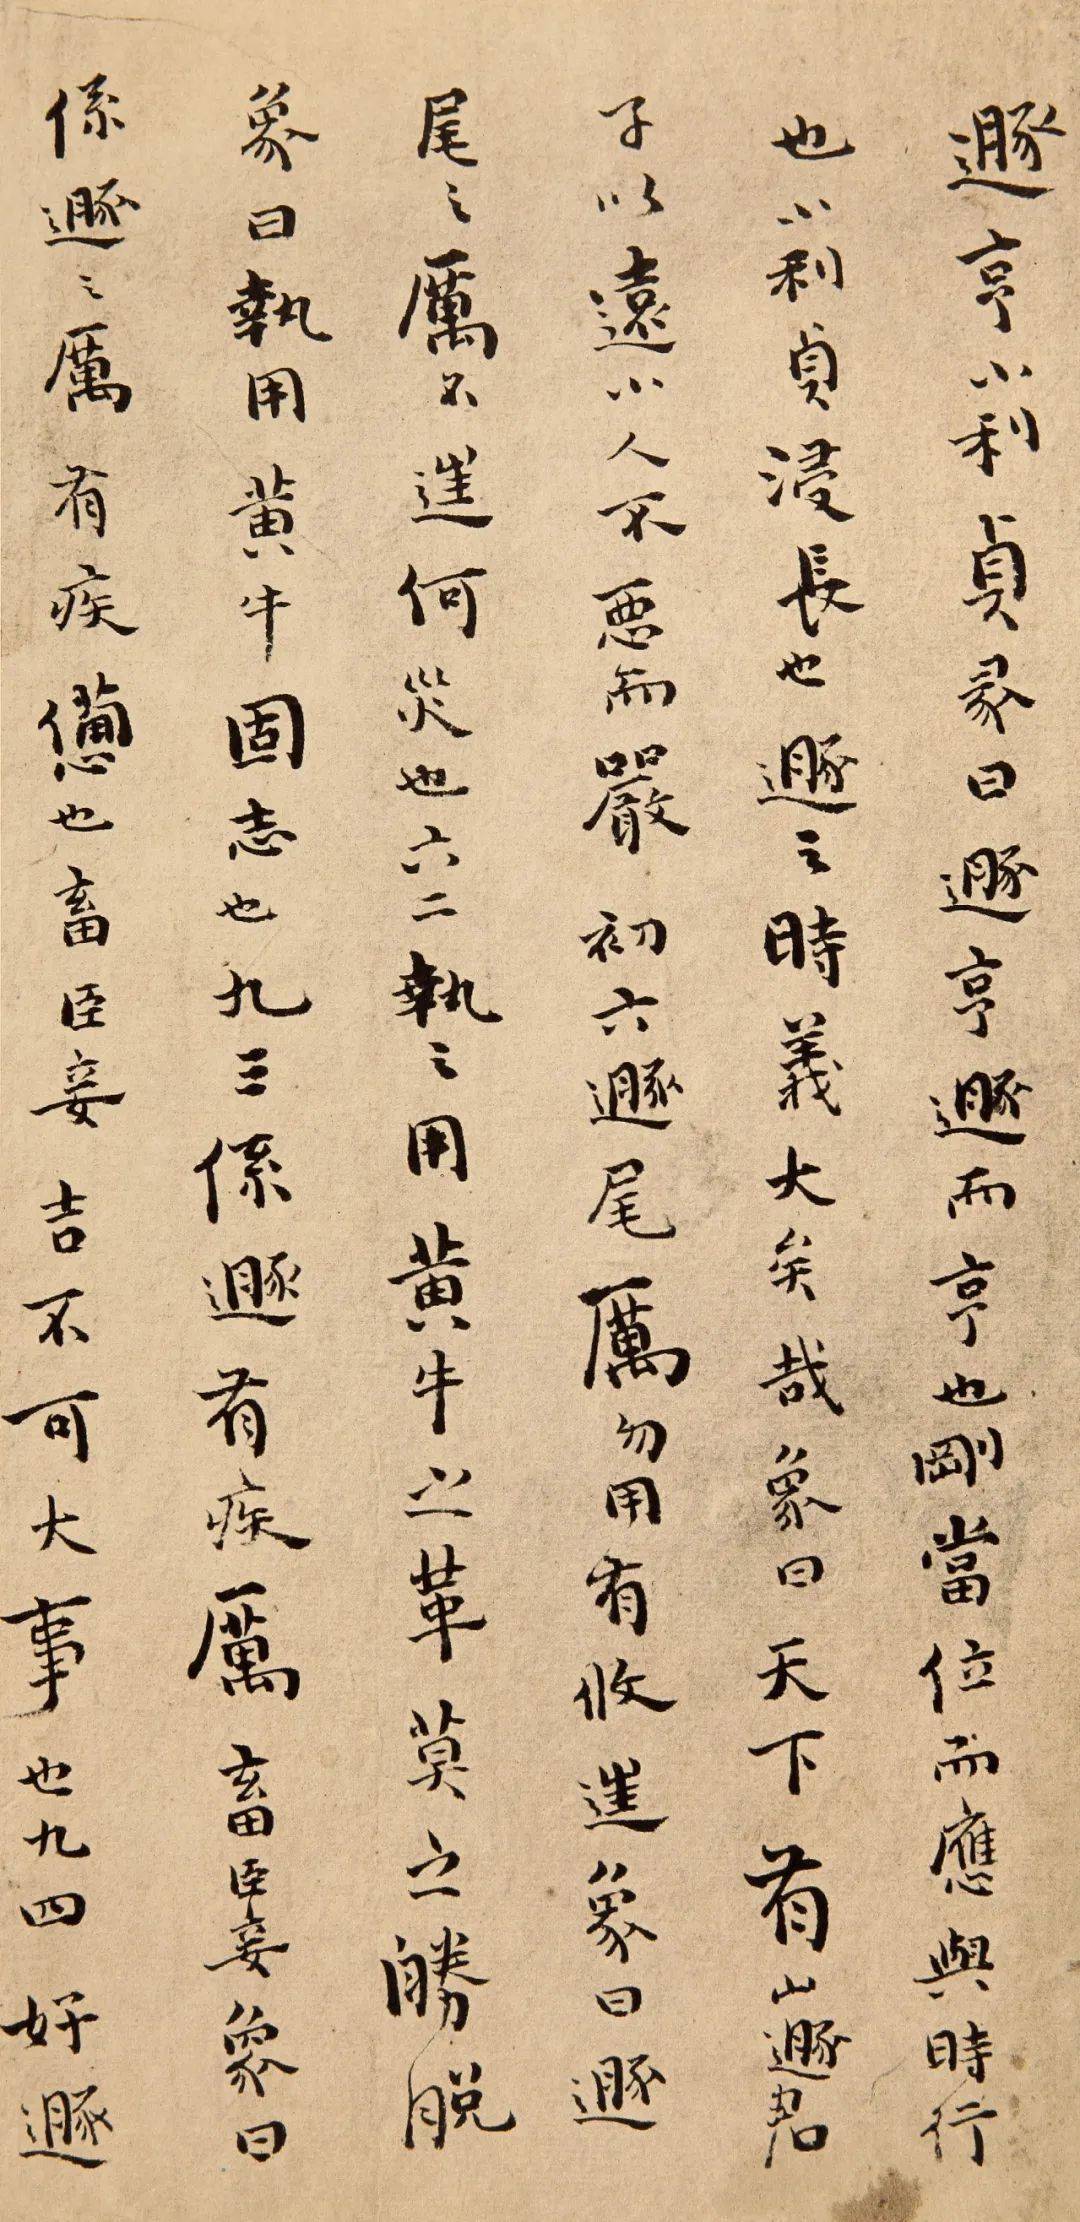 遯亨小利貞彖曰遯亨遯而亨也剛當位而應與時行
也小利貞浸長也遯之時義大矣哉象曰天下有山遯君
子以遠小人不悪而嚴初六遯尾厲勿用有攸進象曰遯
尾之厲不進何災也六二執之用黄牛之革莫之勝脫
象曰執用黄牛固志也九三係遯有疾厲畜臣妾象曰
係遯之厲有疾憊也畜臣妾吉不可大事也九四好遯